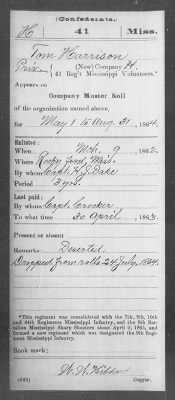 (Confederate.)
H 41 Miss.
Tom Harrison
Private, (New) Company H,
41 Reg't Mississippi Volunteers.*
Appears on
Company Muster Roll
of the organization named above,
for May 1 to Aug. 31, 1864.
Enlisted:
When Mch. 9, 1862.
Where Rocky Ford, Miss.
By whom Capt. H. J. Duke
Period 3 yrs.
Last paid:
By whom Capt. Crocker
To what time 30 April, 1863.
Present or absent
Remarks: Deserted.
Dropped from rolls 24 July, 1864.
*This regiment was consolidated with the 7th, 9th, 10th
and 44th Regiments Mississippi Infantry, and the 9th Bat-
talion Mississippi Sharp Shooters about April 9, 1865, and
formed a new regiment which was designated the 9th Regi-
ment Mississippi Infantry.
Book mark:
(642)
Copyist.